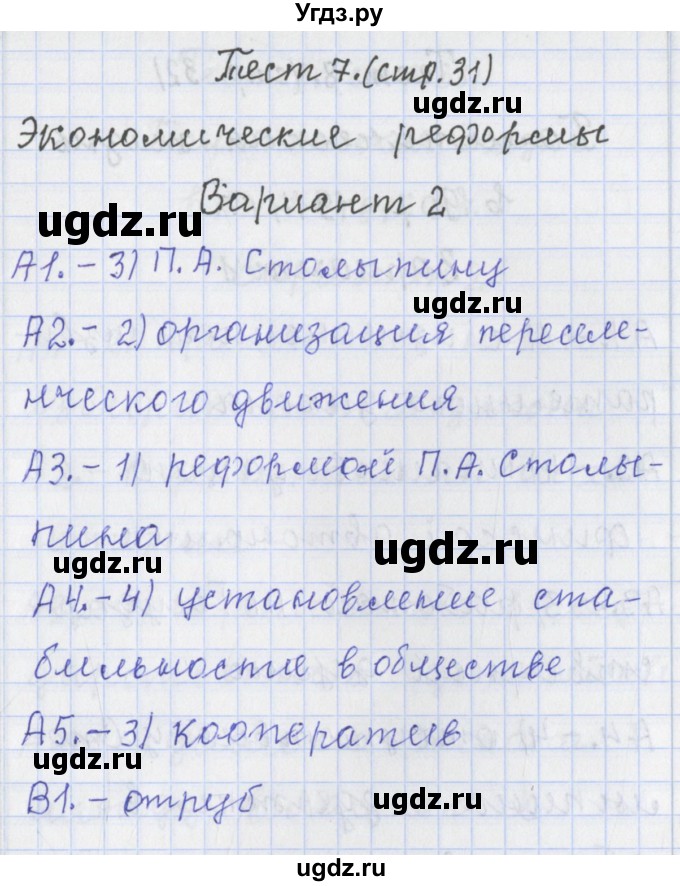 Угдз.ру
Тест 7.(стр.31)
Экономические реформы
Вариант 2
ugdz.ru
А1.-3) П.А. Столыпину
А2.-2) организация пересле-
нческого движения
А3.-1) реформой П.А. Столы-
пина
ugdz.ru
ugdz.ru
А4.-4) установление ста-
бильности в обществе
А5.-3) кооператив
ugdz.ru
В1.-отруб
ugdz.ru
ugdz.ru